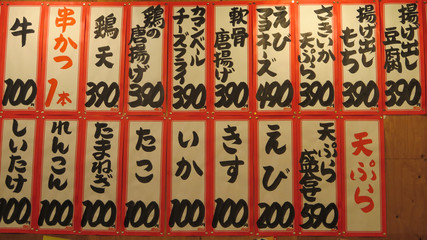 揚げ出し
豆腐
390
揚げ出し
もち
390
さきいか
天ぷら
390
えび
マヨネーズ
490
軟骨
唐揚げ
390
カマンベール
チーズフライ
390
鶏の
唐揚げ
390
鶏天
390
串かつ
1本
牛
100
天ぷら
天ぷら
盛合せ
590
えび
200
きす
100
いか
100
たこ
100
たまねぎ
100
れんこん
100
しいたけ
100